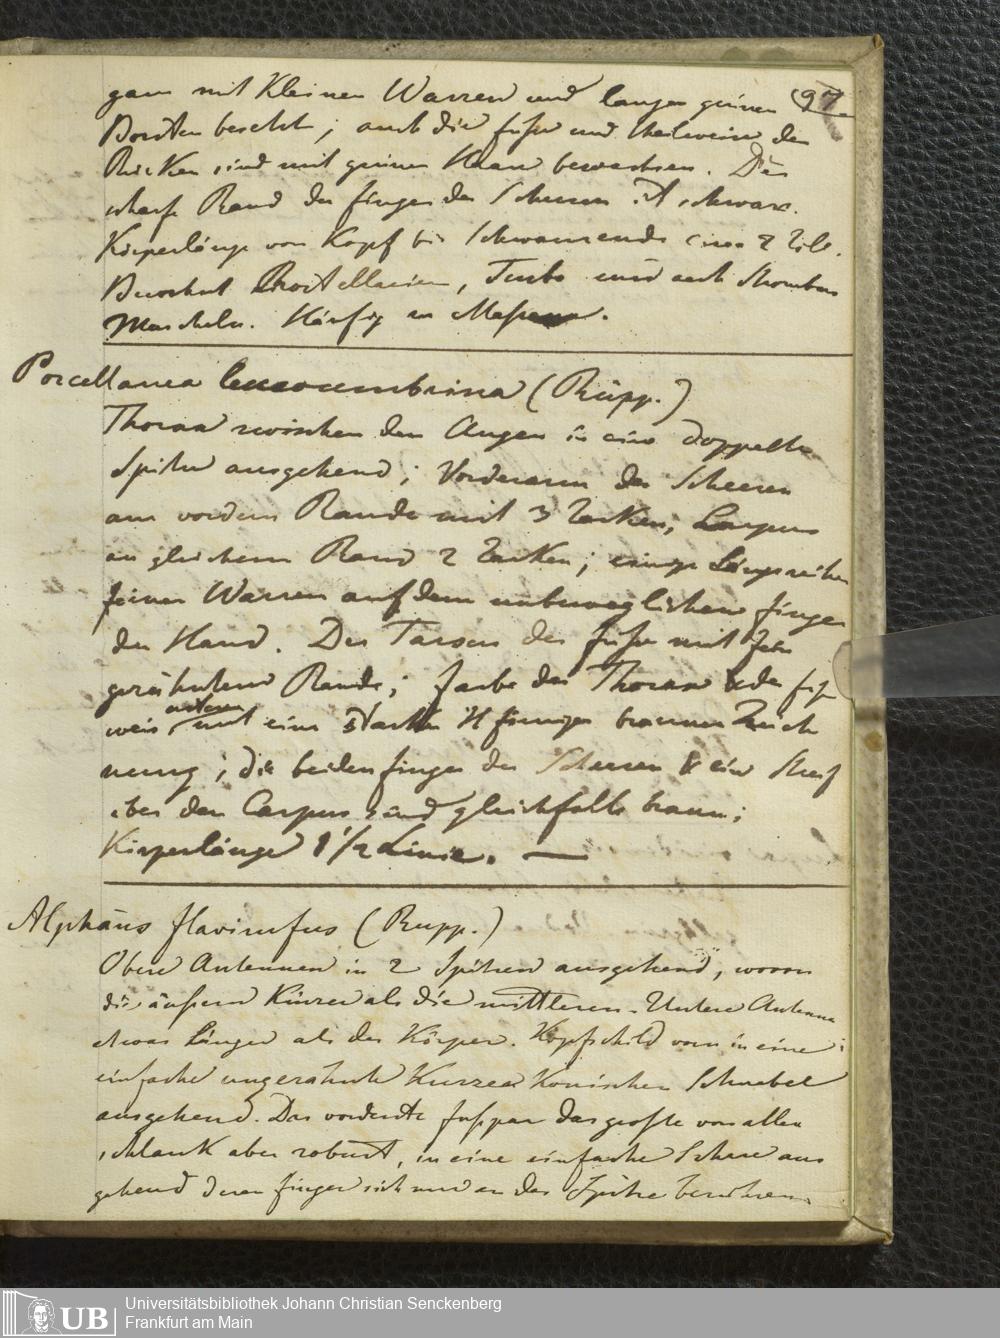 ganz mit Kleinen Warzen und langen grünen 97
Borsten besetzt; auch die Füsse und theilweise der
Rücken sind mit grünen Haaren bewachsen. Der
scharfe Rand der Finger der Scheeren ist schwarz.
Körperlänge von Kopf bis Schwanzende circa 2 Zoll.
Bewohnt Turbo und auch Strombus
Muscheln. Häufig in
Porcellanea (Rüpp.)
Thorax zwischen den Augen in eine doppelte
Spitze ausgehend; Vorderarm der Scheeren
am vordern Rande mit 3 Zacken; Carpus
an gleichem Rand 2 Zacken; einige Längsreihen
feiner Warzen auf dem unbeweglichen Finger
der Hand. Der Tarsus der Füsse mit
gezähntem Rande; Farbe des Thorax & der Füsse
weis, mit einer starken H förmigen braunen Zeich
nung; die beiden Finger der Scheeren & ein Streif
über den Carpus sind gleichfalls braun;
Körperlänge 1 1/2 Linie. —
Alphäus flavirufus (Rupp.)
Obere Antennen in 2 Spitzen ausgehend, wovon
die äussern Kürzer als die mittleren. Untere Antenne
etwas Länger als der Körper. Kopfschild vorn in eine
einfache ungezähnte Kurze Konischen Schnabel
ausgehend. Das vorderste Fusspaar das grosste von allen
schlank aber robust, in eine einfache Schere aus
gehend deren Finger sich nur an der Spitze berühren.
UB
Universitätsbibliothek Johann Christian Senckenberg
Frankfurt am Main